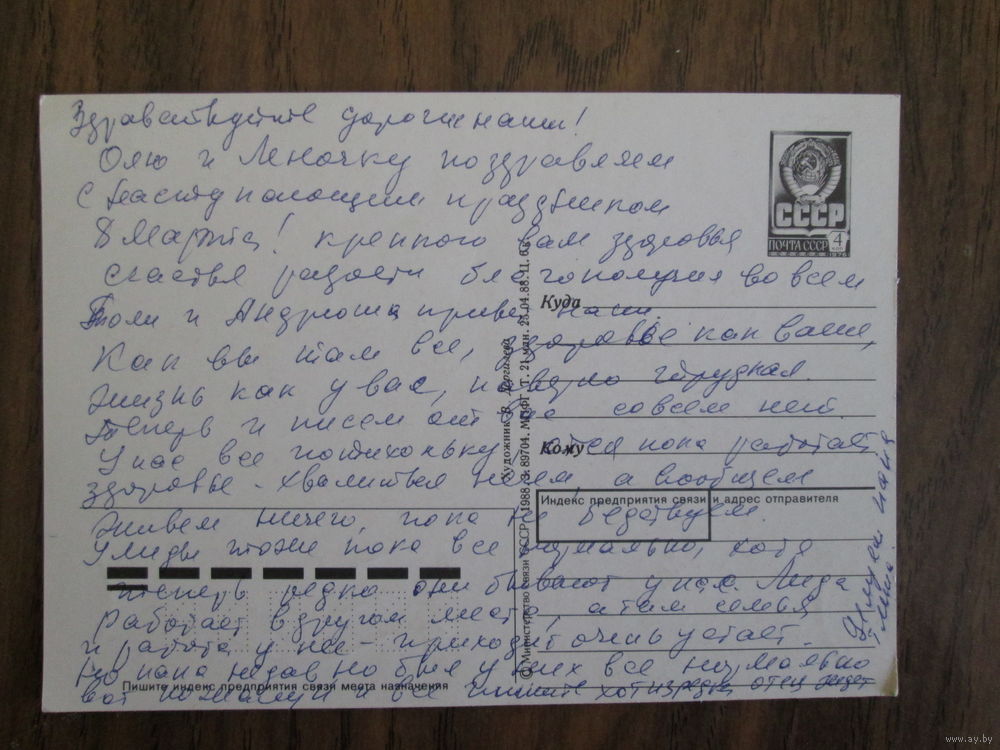 Здравствуйте дорогие наши!
Олю и Леночку поздравляем
с наступающим праздником
8 Марта! крепкого вам здоровья
счастья радости благополучия во всем
Толи и Андрюша привет наш.
Как вы там все, здоровье как ваше,
жизнь как у вас, наверно трудная.
Теперь и писем от вас совсем нет.
У нас все потихоньку, отец пока работает
здоровье - хвалиться нечем, а вообщем
живем ничего, пока не бедствуем.
У Лиды тоже пока все нормально, хотя
теперь редко они бывают у нас. Лида
работает в другом месте, а там семья
и работа у нее - приходит очень устает.
Но папа недавно был у них все нормально
вот и все пишите хоть изредка отец ждет
Целуем папа
мама
СССР
ПОЧТА СССР
4
КОП
1976
Куда
Кому
Индекс предприятия связи и адрес отправителя
Пишите индекс предприятия связи места назначения
© Министерство связи СССР. 1988. З. 89704. МПФГ. Т. 21 млн. 25.04.88. Ц. 6 к.
Художник В.
www.ay.by